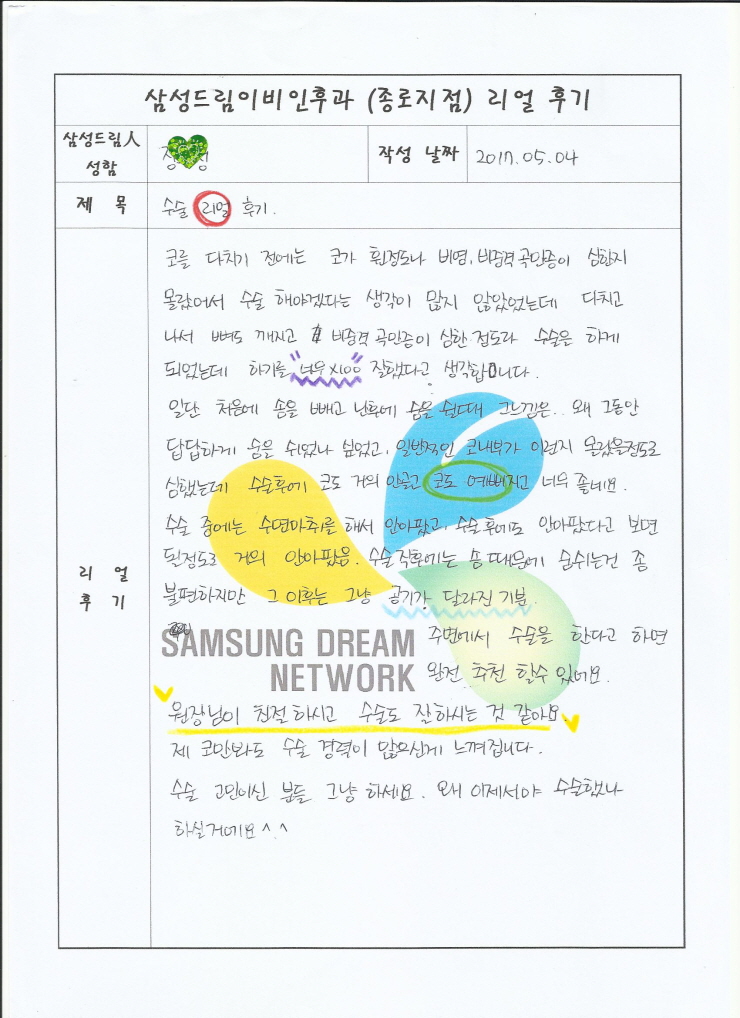 삼성드림이비인후과 (종로지점) 리얼 후기
삼성드림人
성함
정 성
작성 날짜
2017.05.04
제 목
수술 리얼 후기.
리 얼
후 기
코를 다치기 전에는 코가 휜정도나 비염, 비중격곡만증이 심한지
몰랐어서 수술 해야겠다는 생각이 많지 않았었는데 다치고
나서 뼈도 깨지고 비중격 곡만증이 심한 정도라 수술은 하게
되었는데 하기를 "너무 x100" 잘했다고 생각합니다.
일단 처음에 솜을 빼고 난후에 숨을 쉴때 그느낌은.. 왜 그동안
답답하게 숨을 쉬었나 싶었고, 일반적인 코내부가 이런지 몰랐을정도로
심했는데 수술후에 코도 거의 안골고 코도 예뻐지고 너무 좋네요.
수술 중에는 수면마취를 해서 안아팠고, 수술후에도 안아팠다고 보면
된정도로 거의 안아팠음. 수술직후에는 솜 때문에 숨쉬는건 좀
불편하지만 그 이후는 그냥 공기가 달라진 기분.
주변에서 수술을 한다고 하면
완전 추천 할수 있어요.
SAMSUNG DREAM
NETWORK
원장님이 친절하시고 수술도 잘하시는 것 같아요.
제 코만봐도 수술 경력이 많으신게 느껴집니다.
수술 고민이신 분들 그냥 하세요. 왜 이제서야 수술했나
하실거에요^.^